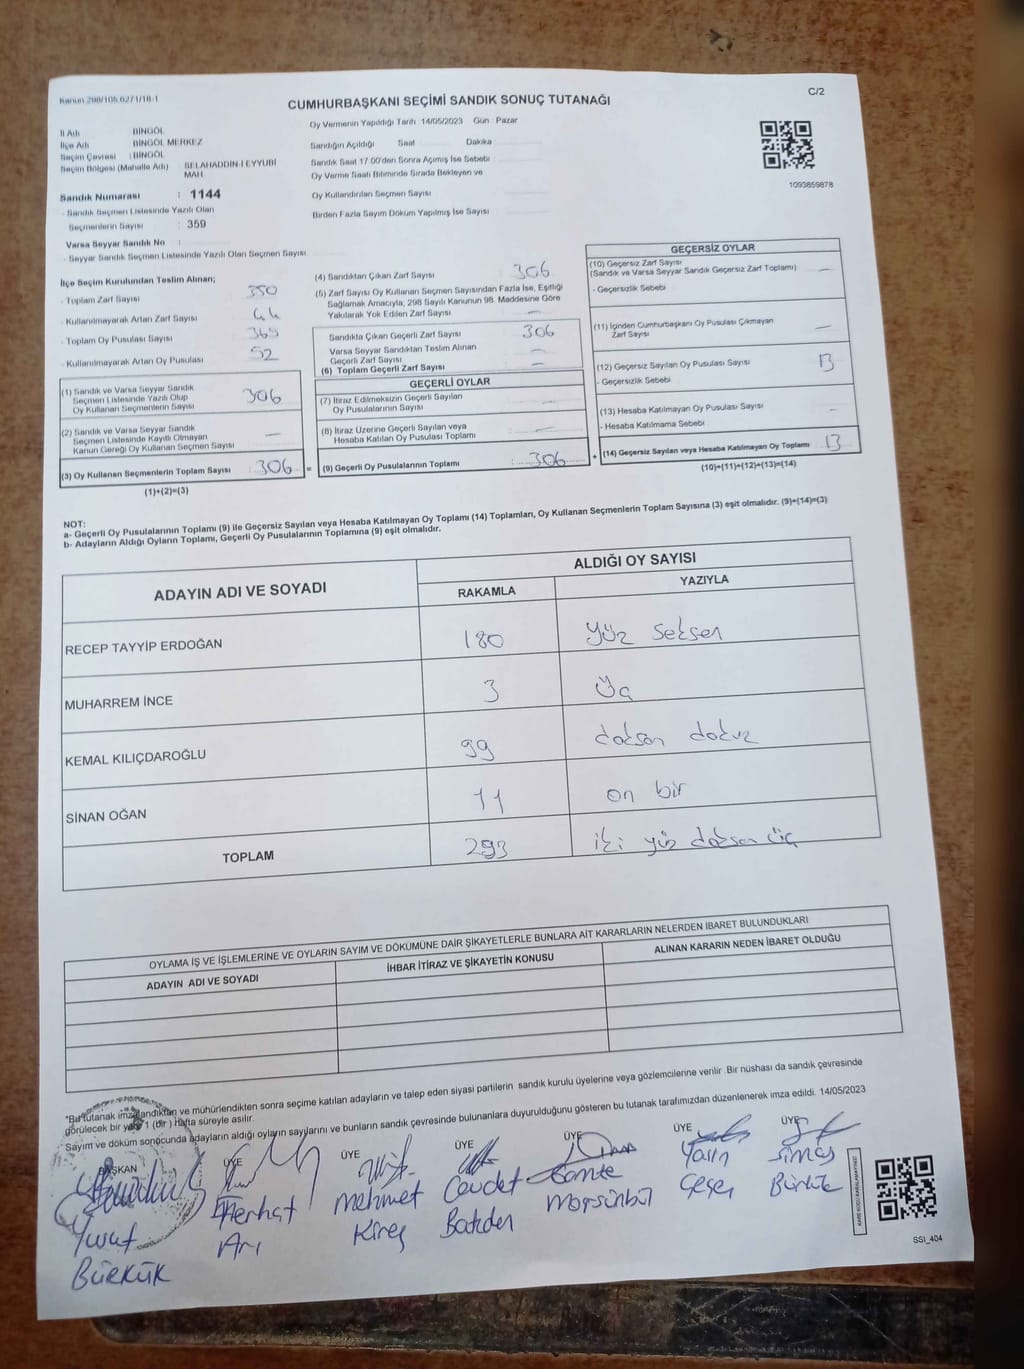 Kanun 298/105.627 1/18-1
C/2
CUMHURBAŞKANI SEÇİMİ SANDIK SONUÇ TUTANAĞI
Oy Vermenin Yapıldığı Tarih 14/05/2023 Gün : Pazar
İl Adı BİNGÖL
İlçe Adı BİNGÖL MERKEZ
Seçim Çevresi : BİNGÖL
Seçim Bölgesi (Mahalle Adı) SELAHADDİN-İ EYYUBİ MAH.
Sandık Numarası : 1144
- Sandık Seçmen Listesinde Yazılı Olan
Seçmenlerin Sayısı : 359
Varsa Seyyar Sandık No :
- Seyyar Sandık Seçmen Listesinde Yazılı Olan Seçmen Sayısı
Sandığın Açıldığı Saat Dakika
Sandık Saat 17.00'den Sonra Açımış İse Sebebi
Oy Verme Saati Bitiminde Sırada Bekleyen ve
Oy Kullandırılan Seçmen Sayısı
Birden Fazla Sayım Döküm Yapılmış İse Sayısı
1093859878
İlçe Seçim Kurulundan Teslim Alınan;
- Toplam Zarf Sayısı 350
- Kullanılmayarak Artan Zarf Sayısı 44
- Toplam Oy Pusulası Sayısı
- Kullanılmayarak Artan Oy Pusulası 52
(1) Sandık ve Varsa Seyyar Sandık
Seçmen Listesinde Yazılı Olup
Oy Kullanan Seçmenlerin Sayısı 306
(2) Sandık ve Varsa Seyyar Sandık
Seçmen Listesinde Kayıtlı Olmayan
Kanun Gereği Oy Kullanan Seçmen Sayısı —
(3) Oy Kullanan Seçmenlerin Toplam Sayısı : 306 =
(1)+(2)=(3)
(4) Sandıktan Çıkan Zarf Sayısı 306
(5) Zarf Sayısı Oy Kullanan Seçmen Sayısından Fazla İse, Eşitliği
Sağlamak Amacıyla, 298 Sayılı Kanunun 98. Maddesine Göre
Yakılarak Yok Edilen Zarf Sayısı —
Sandıkta Çıkan Geçerli Zarf Sayısı 306
Varsa Seyyar Sandıktan Teslim Alınan
Geçerli Zarf Sayısı —
(6) Toplam Geçerli Zarf Sayısı —
GEÇERLİ OYLAR
(7) İtiraz Edilmeksizin Geçerli Sayılan
Oy Pusulalarının Sayısı —
(8) İtiraz Üzerine Geçerli Sayılan veya
Hesaba Katılan Oy Pusulası Toplamı —
(9) Geçerli Oy Pusulalarının Toplamı : 306 +
GEÇERSİZ OYLAR
(10) Geçersiz Zarf Sayısı
(Sandık ve Varsa Seyyar Sandık Geçersiz Zarf Toplamı) —
- Geçersizlik Sebebi
(11) İçinden Cumhurbaşkanı Oy Pusulası Çıkmayan
Zarf Sayısı —
(12) Geçersiz Sayılan Oy Pusulası Sayısı 13
- Geçersizlik Sebebi
(13) Hesaba Katılmayan Oy Pusulası Sayısı —
- Hesaba Katılmama Sebebi
(14) Geçersiz Sayılan veya Hesaba Katılmayan Oy Toplamı 13
(10)+(11)+(12)+(13)=(14)
NOT:
a- Geçerli Oy Pusulalarının Toplamı (9) ile Geçersiz Sayılan veya Hesaba Katılmayan Oy Toplamı (14) Toplamları, Oy Kullanan Seçmenlerin Toplam Sayısına (3) eşit olmalıdır. (9)+(14)=(3)
b- Adayların Aldığı Oyların Toplamı, Geçerli Oy Pusulalarının Toplamına (9) eşit olmalıdır.
ADAYIN ADI VE SOYADI ALDIĞI OY SAYISI
RAKAMLA YAZIYLA
RECEP TAYYİP ERDOĞAN 180 yüz seksen
MUHARREM İNCE 3 üç
KEMAL KILIÇDAROĞLU 99 doksan dokuz
SİNAN OĞAN 11 on bir
TOPLAM 293 iki yüz doksan üç
OYLAMA İŞ VE İŞLEMLERİNE VE OYLARIN SAYIM VE DÖKÜMÜNE DAİR ŞİKAYETLERLE BUNLARA AİT KARARLARIN NELERDEN İBARET BULUNDUKLARI
ADAYIN ADI VE SOYADI İHBAR İTİRAZ VE ŞİKAYETİN KONUSU ALINAN KARARIN NEDEN İBARET OLDUĞU
*Bu tutanak imzalandıktan ve mühürlendikten sonra seçime katılan adayların ve talep eden siyasi partilerin sandık kurulu üyelerine veya gözlemcilerine verilir. Bir nüshası da sandık çevresinde
görülecek bir yere 1 (bir) hafta süreyle asılır.
Sayım ve döküm sonucunda adayların aldığı oyların sayılarını ve bunların sandık çevresinde bulunanlara duyurulduğunu gösteren bu tutanak tarafımızdan düzenlenerek imza edildi. 14/05/2023
BAŞKAN ÜYE ÜYE ÜYE ÜYE ÜYE ÜYE
Ferhat Mehmet Cevdet Yasin
Arı Kireç
SSI_404